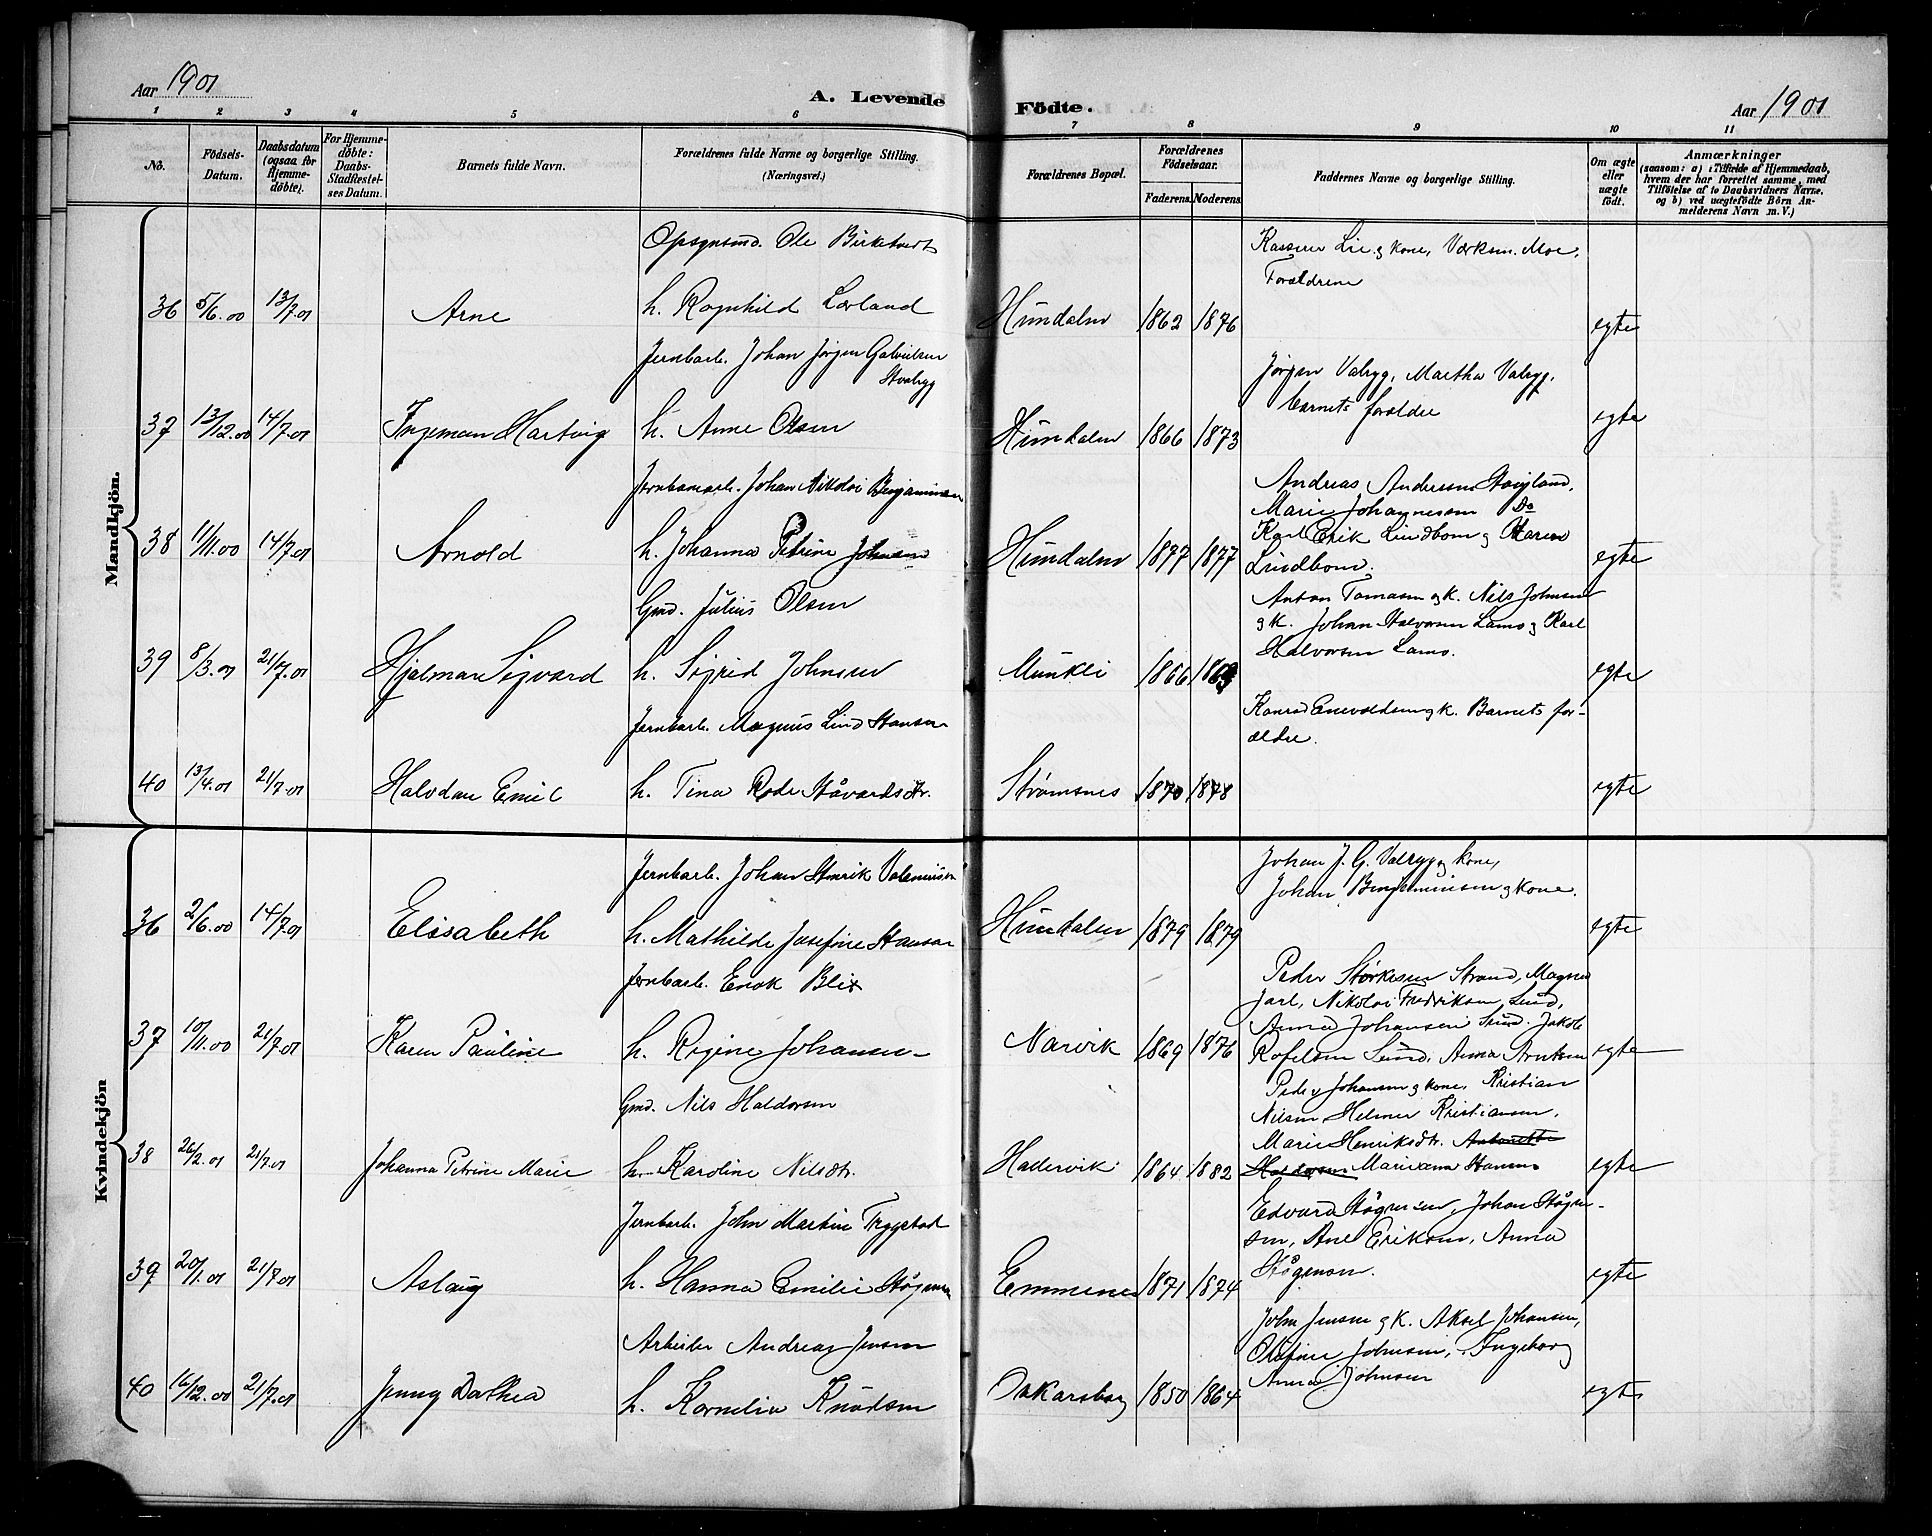 Aar 1901
A. Levende Födte.
Aar 1901
1 2 3 4 5 6 7 8 9 10 11
No.
Födsels-Datum.
Daabsdatum (ogsaa for Hjemmedöbte).
For Hjemmedöbte: Daabs-Stadfestelses Datum.
Barnets fulde Navn.
Forældrenes fulde Navne og borgerlige Stilling. (Næringsvei.)
Forældrenes Bopæl.
Forældrenes Födselsaar.
Faderens. Moderens.
Faddernes Navne og borgerlige Stilling.
Om ægte eller uægte födt.
Anmærkninger
(saasom: a) i Tilfælde af Hjemmedaab,
hvem der har forrettet samme, med
Tilföielse af to Daabsvidners Navne,
og b) ved uægtefödte Börn An-
melderens Navn m. V.)
Mandkjön.
Opsynsmd. Ole Birketvedt
Kasserer Lie og kone, Værksm. Moe,
Forældrene
36 5/6.00 13/7.01 Arne h. Ragnhild Lærland Hundalen 1862 1876 egte
Jernbarb. Johan Jørgen Gabrielsen
Jørgen Valryg, Martha Valryg,
barnets forældre
37 13/12.00 14/7.01 Ingeman Hartvig h. Anne Olsen Hundalen 1866 1873 egte
Jernbanearb. Johan Nikolai Benjaminsen
Andreas Andersen
Marie Johannesen Do
Karl Erik Lindbom og Maren
38 11/11.00 14/7.01 Arnold h. Johanna Petrine Johnsen Hundalen 1877 1877 Lindbom. egte
Gmd. Julius Olsen
Anton Tomasen og k. Nils Johnsen
og k. Johan Halvorsen Lamo og Karl
Halvorsen Lamo.
39 8/3.01 21/7.01 Hjalmar Sigvard h. Sigrid Johnsen Munkli 1866 egte
Jernbarb. Magnus Lind Hansen
Konrad Enevoldsen og k. Barnets for-
ældre.
40 13/4.01 21/7.01 Halvdan Emil h. Tina Håvardsdtr. Strømsnes 1870 1878 egte
Kvindekjön
Jernbarb. Johan Henrik
Johan J. G. Valryg og kone,
Johan Benjaminsen og kone.
36 2/6.00 14/7.01 Elisabeth h. Mathilde Josefine Hansen Hundalen 1879 1879 egte
Jernbarb. Enok Blix
Peder Størkesen Strand, Magna
Jarl, Nikolai Fredriksen Lund,
Anna Johansen Lund. Jakob
37 10/11.00 21/7.01 Karen Pauline h. Regine Johansen Narvik 1869 1876 Rafelsen Lund, Anna Arntsen egte
Gmd. Nils Haldorsen
Peder Johansen og kone, Kristian
Nilsen, Helmer Kristiansen,
Marie Henriksdtr. Antonette
38 26/2.01 21/7.01 Johanna Petrine Marie h. Karoline Nilsdtr. 1864 1882 Haldorsen Marieanne Hansen egte
Jernbarb. John Martin Trygstad
Edvard Høgensen, Johan Høgen-
sen, Ane Eriksen, Anna
39 20/1.01 21/7.01 Aslaug h. Hanna Emilie Høgensen Emmenes 1871 1874 Høgensen. egte
Arbeider Andreas Jensen
John Jensen og k. Aksel Johansen,
Olefine Johnsen, Ingeborg
Anna Johnsen
40 16/12.00 21/7.01 Jenny Dathea h. Kornelia Knudsen Oskarsborg 1850 1864 egte